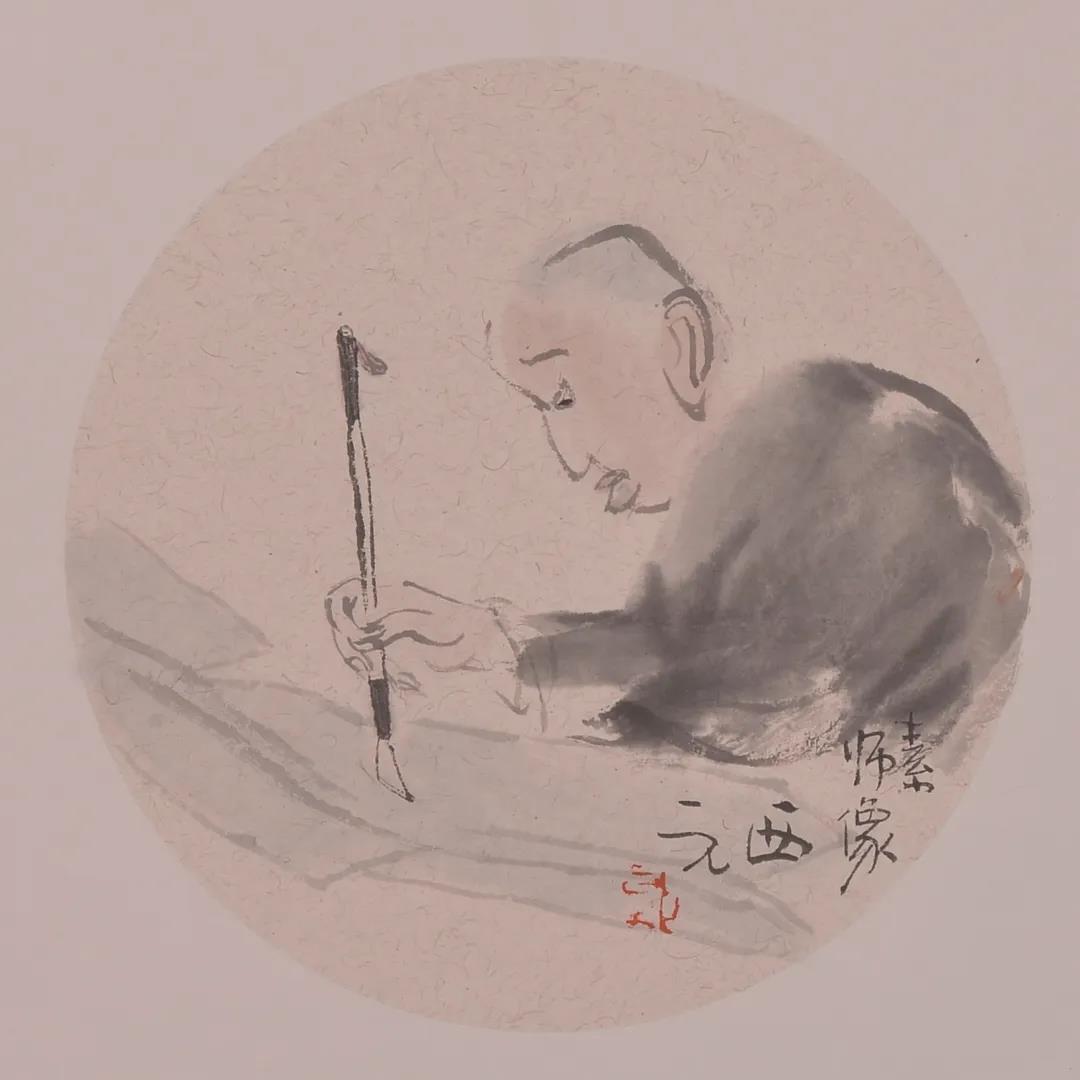 素师像
西元